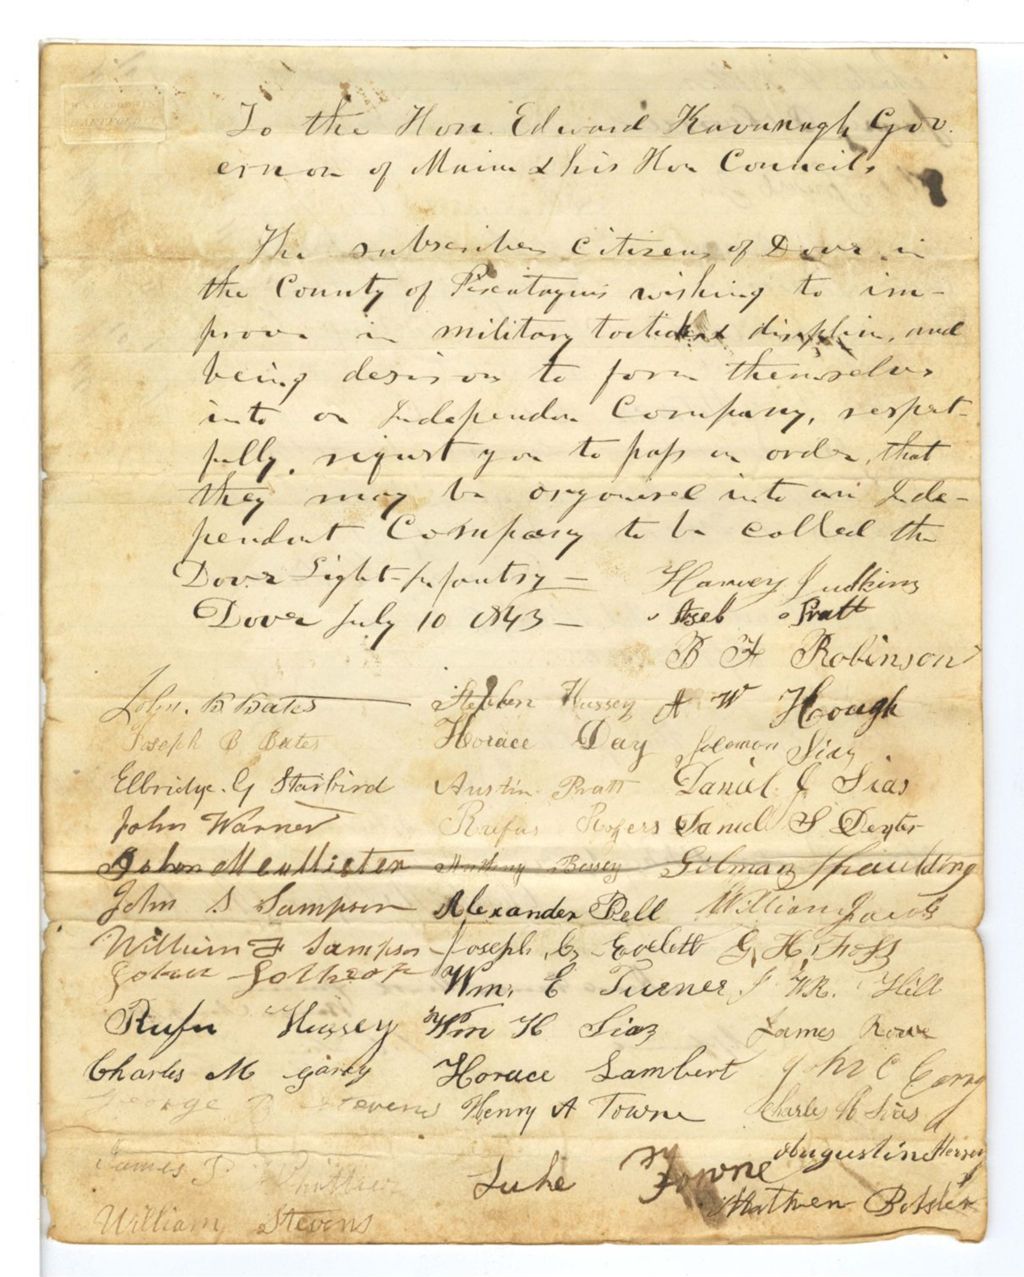 To the Hon. Edward Kavanagh Gov.
ernon of Maine & his Hon Councils
The subscribers Citizens of Dover in
the County of Piscataquis wishing to im-
prove in military tactics & disiplin, and
being desirous to form themselves
into an Independen Company, respect-
fully, request you to pass an order, that
they may be organised into an Inde-
pendent Company to be called the
Dover Light-Infantry —
Dover July 10 1843 —
Harvey Judkins
Aseb Pratt
B F Robinson
John. B Bates Stephen Hussey A W Hough
Joseph B Bates Horace Day Solomon Sias
Elbridge. G Starbird Austin Pratt Daniel J Sias
John Warner Rufus Rogers Samuel S Dexter
John McAllister Bossey Gilman Spaulding
John S Sampson Alexander Bell William
William F Sampson Joseph G Evelett G. H. Foss
Lothrop Wm. E Turner J WR. Hill
Rufus Hussey Wm H Sias James Rowe
Charles M Horace Lambert
George B Stevens Henry A Towne Charles H Sias
James Luke Towne Augustine
William Stevens